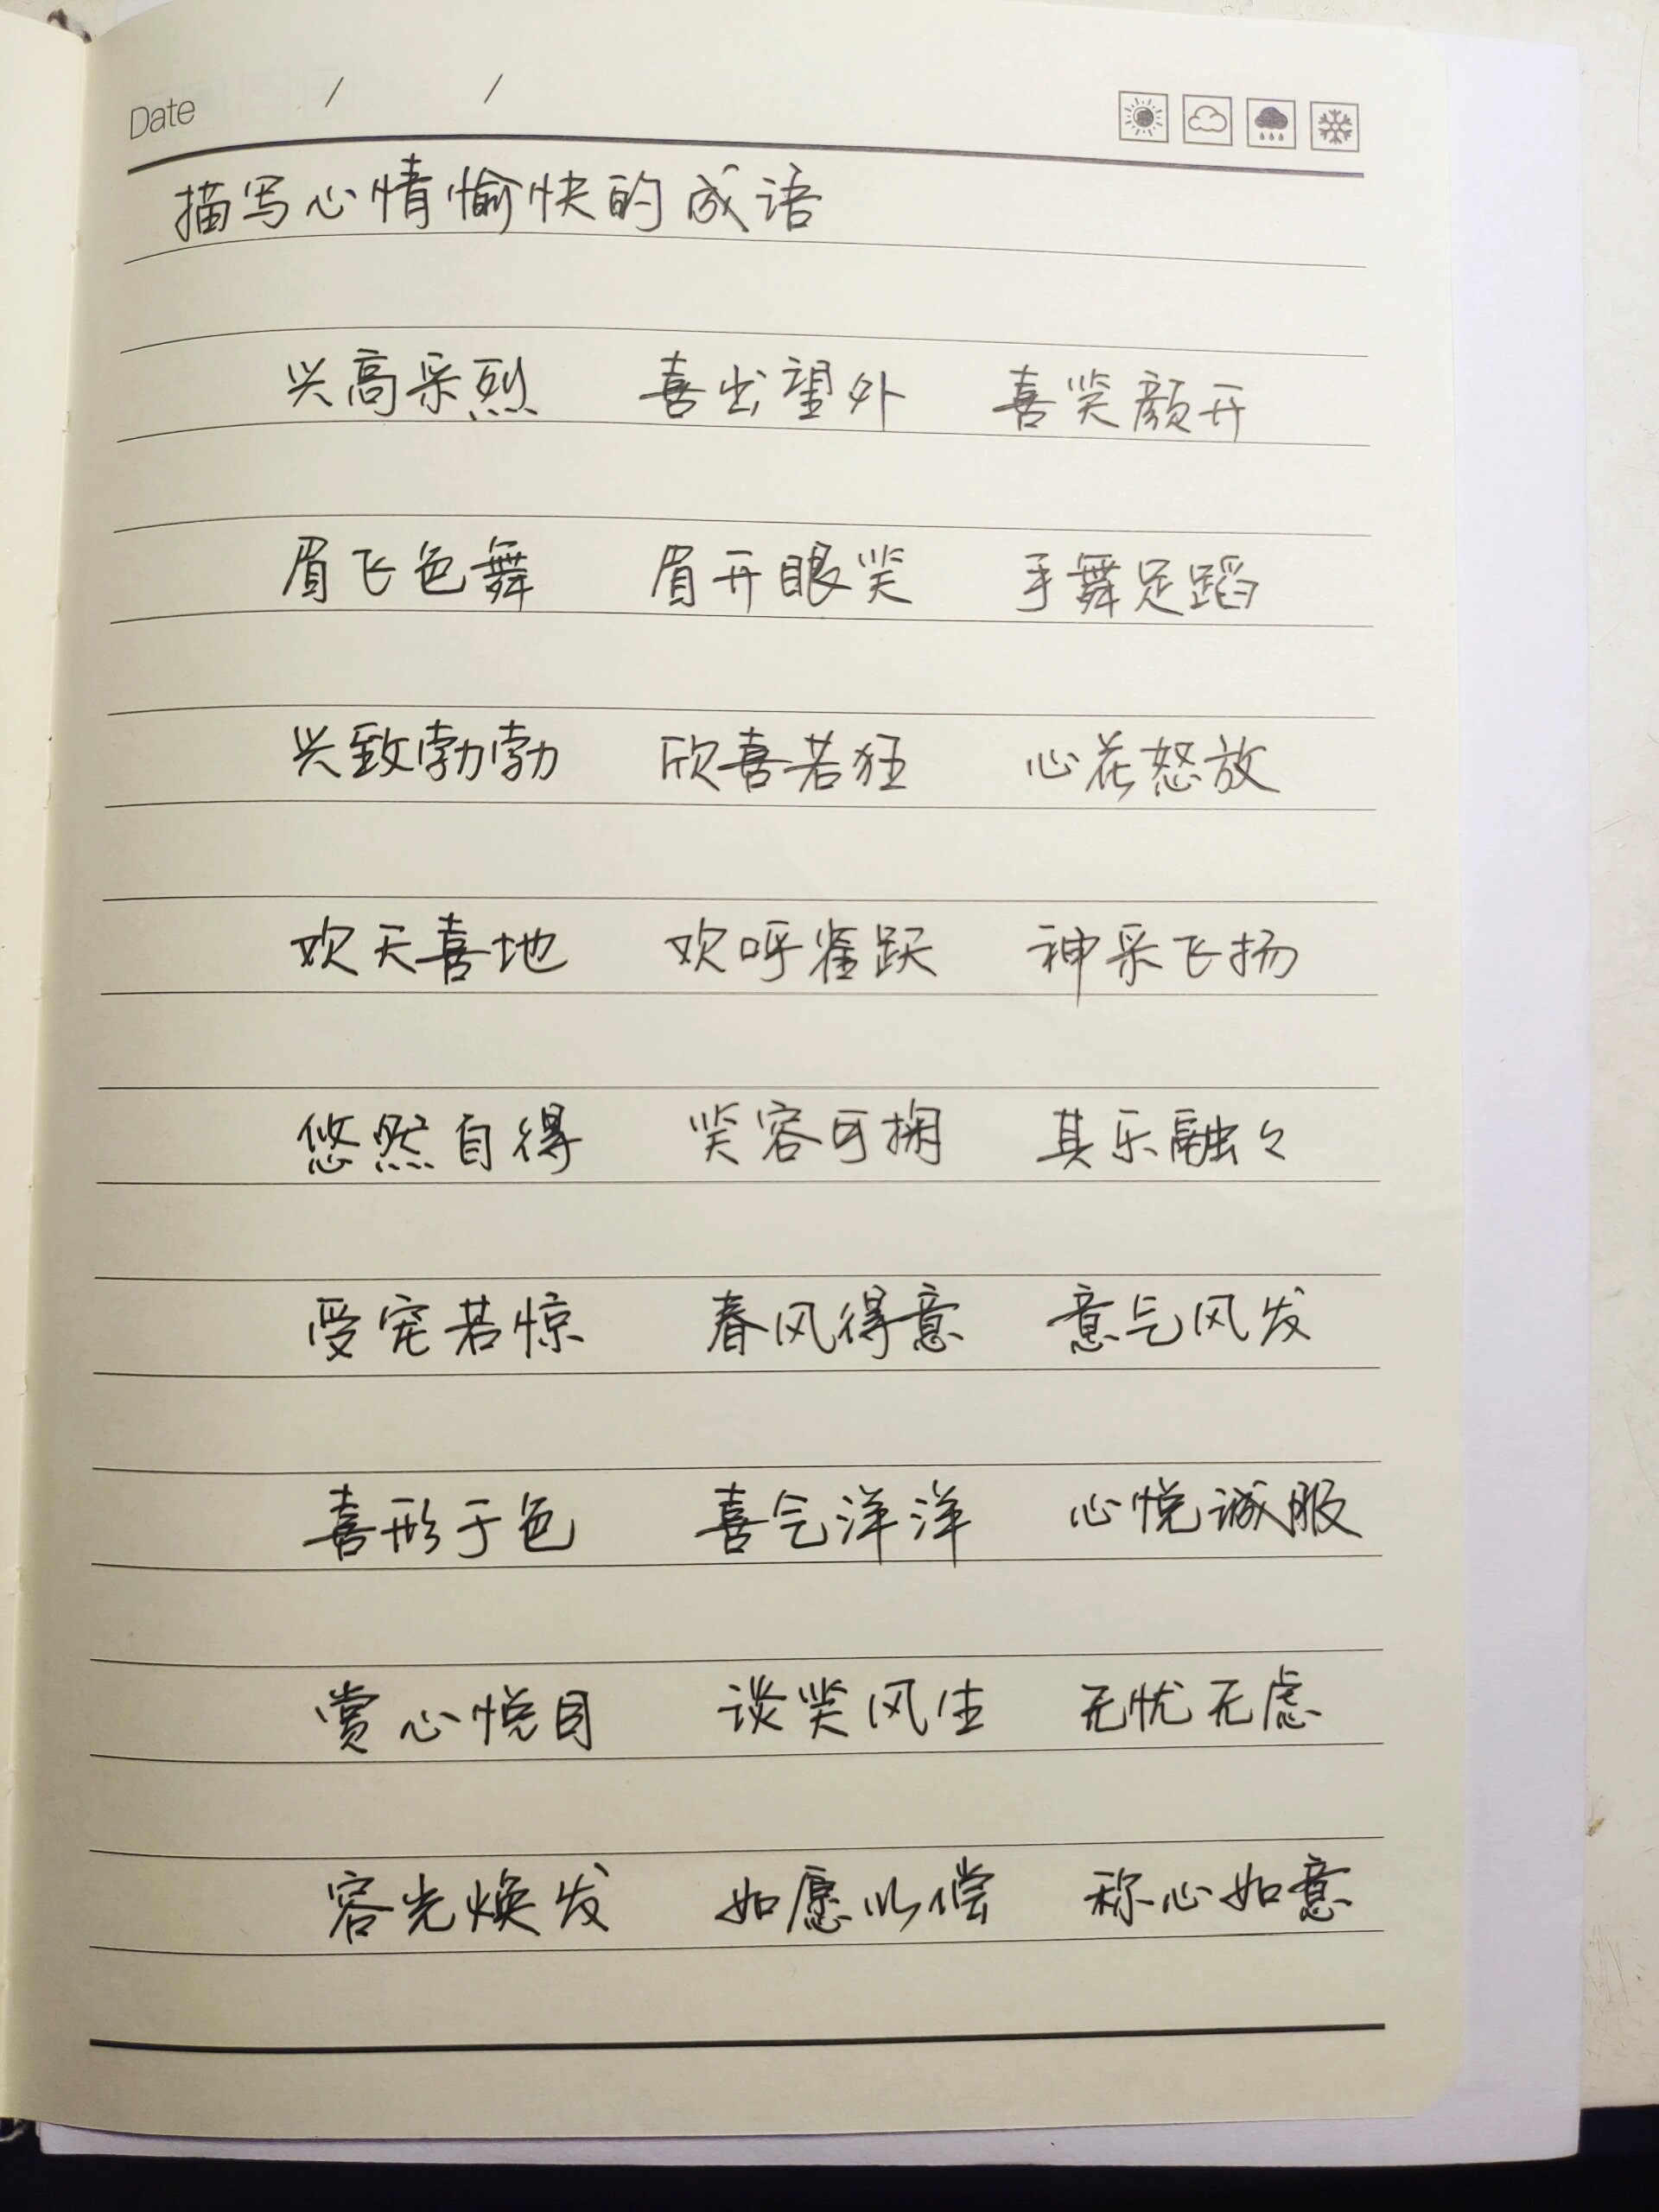 Date / /
描写心情愉快的成语
兴高采烈 喜出望外 喜笑颜开
眉飞色舞 眉开眼笑 手舞足蹈
兴致勃勃 欣喜若狂 心花怒放
欢天喜地 欢呼雀跃 神采飞扬
悠然自得 笑容可掬 其乐融々
受宠若惊 春风得意 意气风发
喜形于色 喜气洋洋 心悦诚服
赏心悦目 谈笑风生 无忧无虑
容光焕发 如愿以偿 称心如意